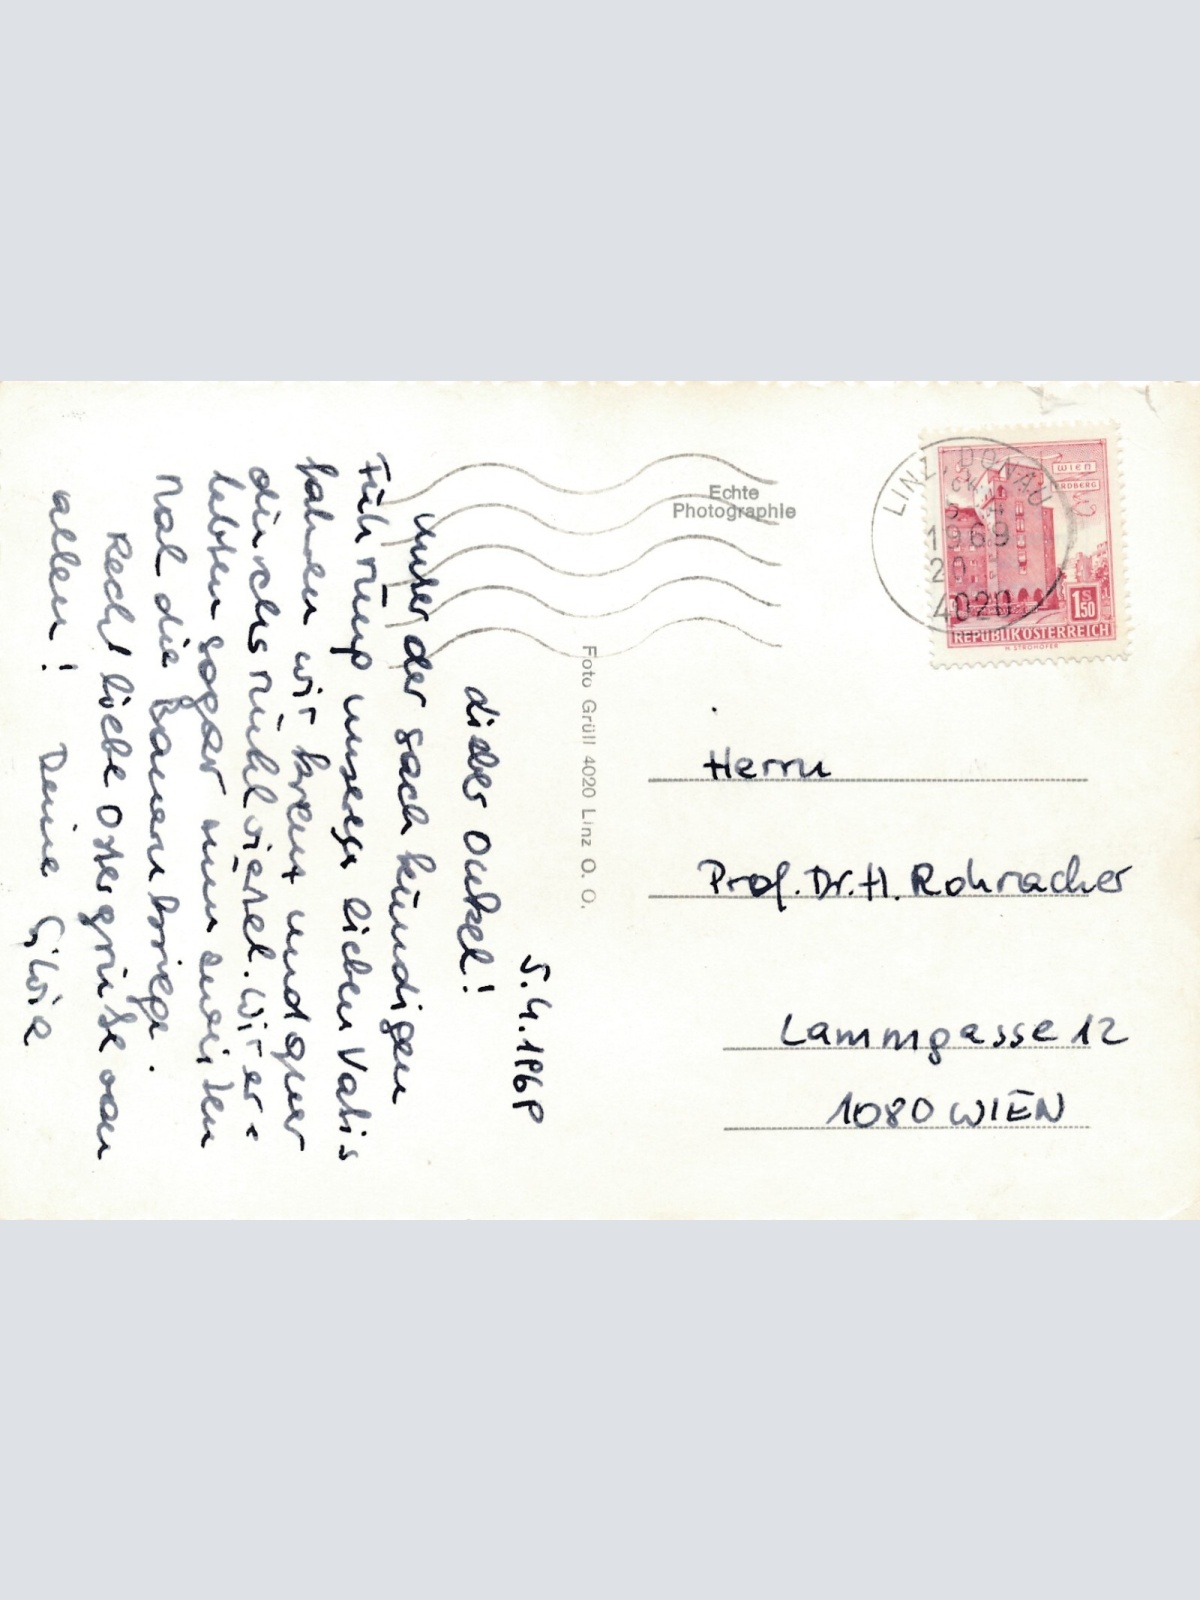 5.4.1969
Lieber Onkel!
Unter der sachkundigen
Führung unseres lieben Vatis
fahren wir kreuz und quer
durchs Mühlviertel. Wir er-
lebten sogar nun zweiten
Mal die Bauernkriege.
Recht liebe Ostergrüße von
allen! Deine Silvia
Foto Grüll 4020 Linz O. Ö.
Echte
Photographie
LINZ, DONAU
1969
20
4020
WIEN
ERDBERG
1 S 50
REPUBLIK ÖSTERREICH
H. STROHOFER
Herrn
Prof. Dr. H. Rohracher
Lammgasse 12
1080 WIEN